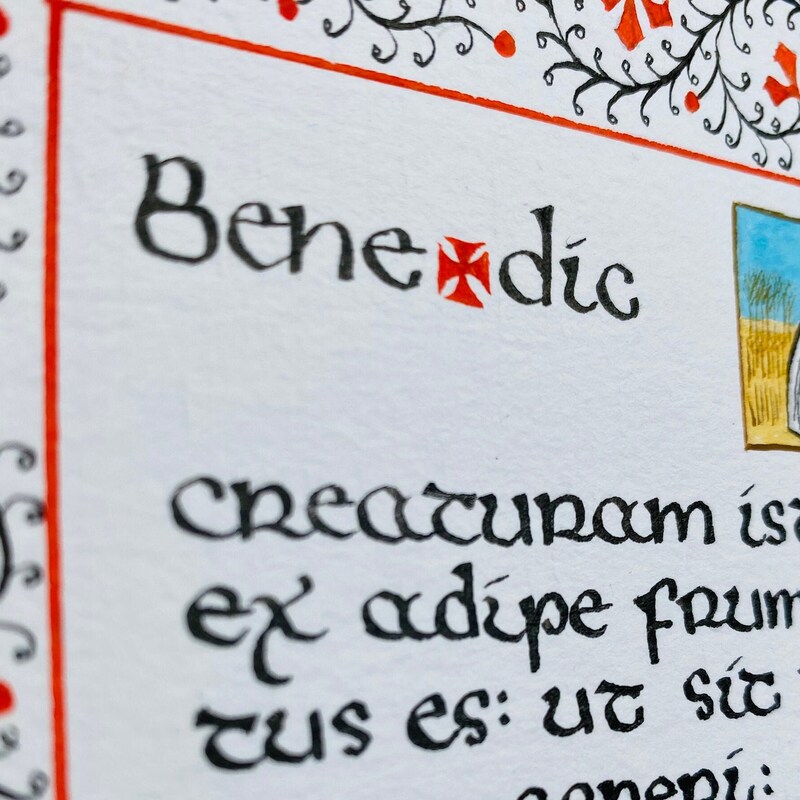 Bene✠dic
creaturam ist
ex adipe frum
tus es: ut sit
generi: